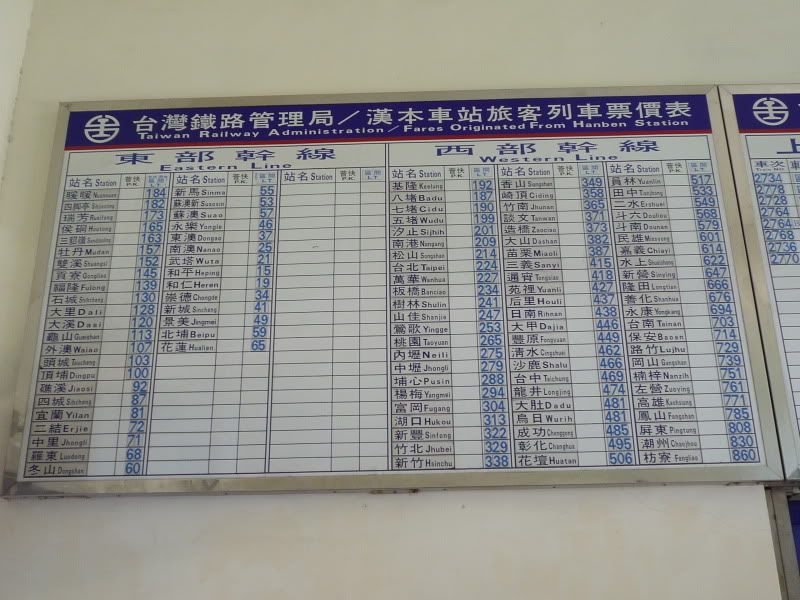 台灣鐵路管理局／漢本車站旅客列車票價表
Taiwan Railway Administration／Fares Originated From Hanben Station
東部幹線
Eastern Line
站名 Station 普快 P.K. 區間 L.T.
暖暖 Nuannuan 184
四腳亭 Sihjiaoting 182
瑞芳 Rueifang 173
侯硐 Houtong 165
三貂嶺 Sandiaoling 163
牡丹 Mudan 157
雙溪 Shuangsi 152
貢寮 Gongliao 145
福隆 Fulong 139
石城 Shihcheng 130
大里 Dali 128
大溪 Dasi 120
龜山 Gueishan 113
外澳 Waiao 107
頭城 Toucheng 103
頂埔 Dingpu 100
礁溪 Jiaosi 92
四城 Sihcheng 87
宜蘭 Yilan 81
二結 Erjie 72
中里 Jhongli 71
羅東 Luodong 68
冬山 Dongshan 60
站名 Station 普快 P.K. 區間 L.T.
新馬 Sinma 55
蘇澳新 Suaosin 53
蘇澳 Suao 57
永樂 Yongle 46
東澳 Dongao 37
南澳 Nanao 26
武塔 Wuta 21
和平 Heping 15
和仁 Heren 19
崇德 Chongde 34
新城 Sincheng 41
景美 Jingmei 49
北埔 Beipu 59
花蓮 Hualien 65
站名 Station 普快 P.K. 區間 L.T.
西部幹線
Western Line
站名 Station 普快 P.K. 區間 L.T.
基隆 Keelung 192
八堵 Badu 187
七堵 Cidu 190
五堵 Wudu 199
汐止 Sijhih 201
南港 Nangang 209
松山 Songshan 214
台北 Taipei 224
萬華 Wanhua 227
板橋 Banciao 234
樹林 Shulin 241
山佳 Shanjia 247
鶯歌 Yingge 253
桃園 Taoyuan 265
內壢 Neili 275
中壢 Jhongli 279
埔心 Pusin 288
楊梅 Yangmei 294
富岡 Fugang 304
湖口 Hukou 313
新豐 Sinfong 322
竹北 Jhubei 329
新竹 Hsinchu 338
站名 Station 普快 P.K. 區間 L.T.
香山 Siangshan 349
崎頂 Ciding 358
竹南 Jhunan 365
談文 Tanwun 371
造橋 Zaociao 373
大山 Dashan 382
苗栗 Miaoli 387
三義 Sanyi 415
通霄 Tongsiao 418
苑裡 Yuanli 427
后里 Houli 437
日南 Rihnan 438
大甲 Dajia 446
豐原 Fongyuan 449
清水 Cingshuei 462
沙鹿 Shalu 466
台中 Taichung 469
龍井 Longjing 474
大肚 Dadu 481
烏日 Wurih 481
成功 Chenggong 485
彰化 Changhua 495
花壇 Huatan 506
站名 Station 普快 P.K. 區間 L.T.
員林 Yuanlin 517
田中 Tianjhong 533
二水 Ershuei 549
斗六 Douliou 568
斗南 Dounan 579
民雄 Minsyong 601
嘉義 Chiayi 614
水上 Shueishang 622
新營 Sinying 647
隆田 Longtian 666
善化 Shanhua 676
永康 Yongkang 694
台南 Tainan 703
保安 Baoan 714
路竹 Lujhu 729
岡山 Gangshan 739
楠梓 Nanzih 751
左營 Zuoying 761
高雄 Kaohsiung 771
鳳山 Fongshan 785
屏東 Pingtung 808
潮州 Chaojhou 830
枋寮 Fangliao 860
上
車次
2734
2778
2728
2764
2764
2768
2736
2770